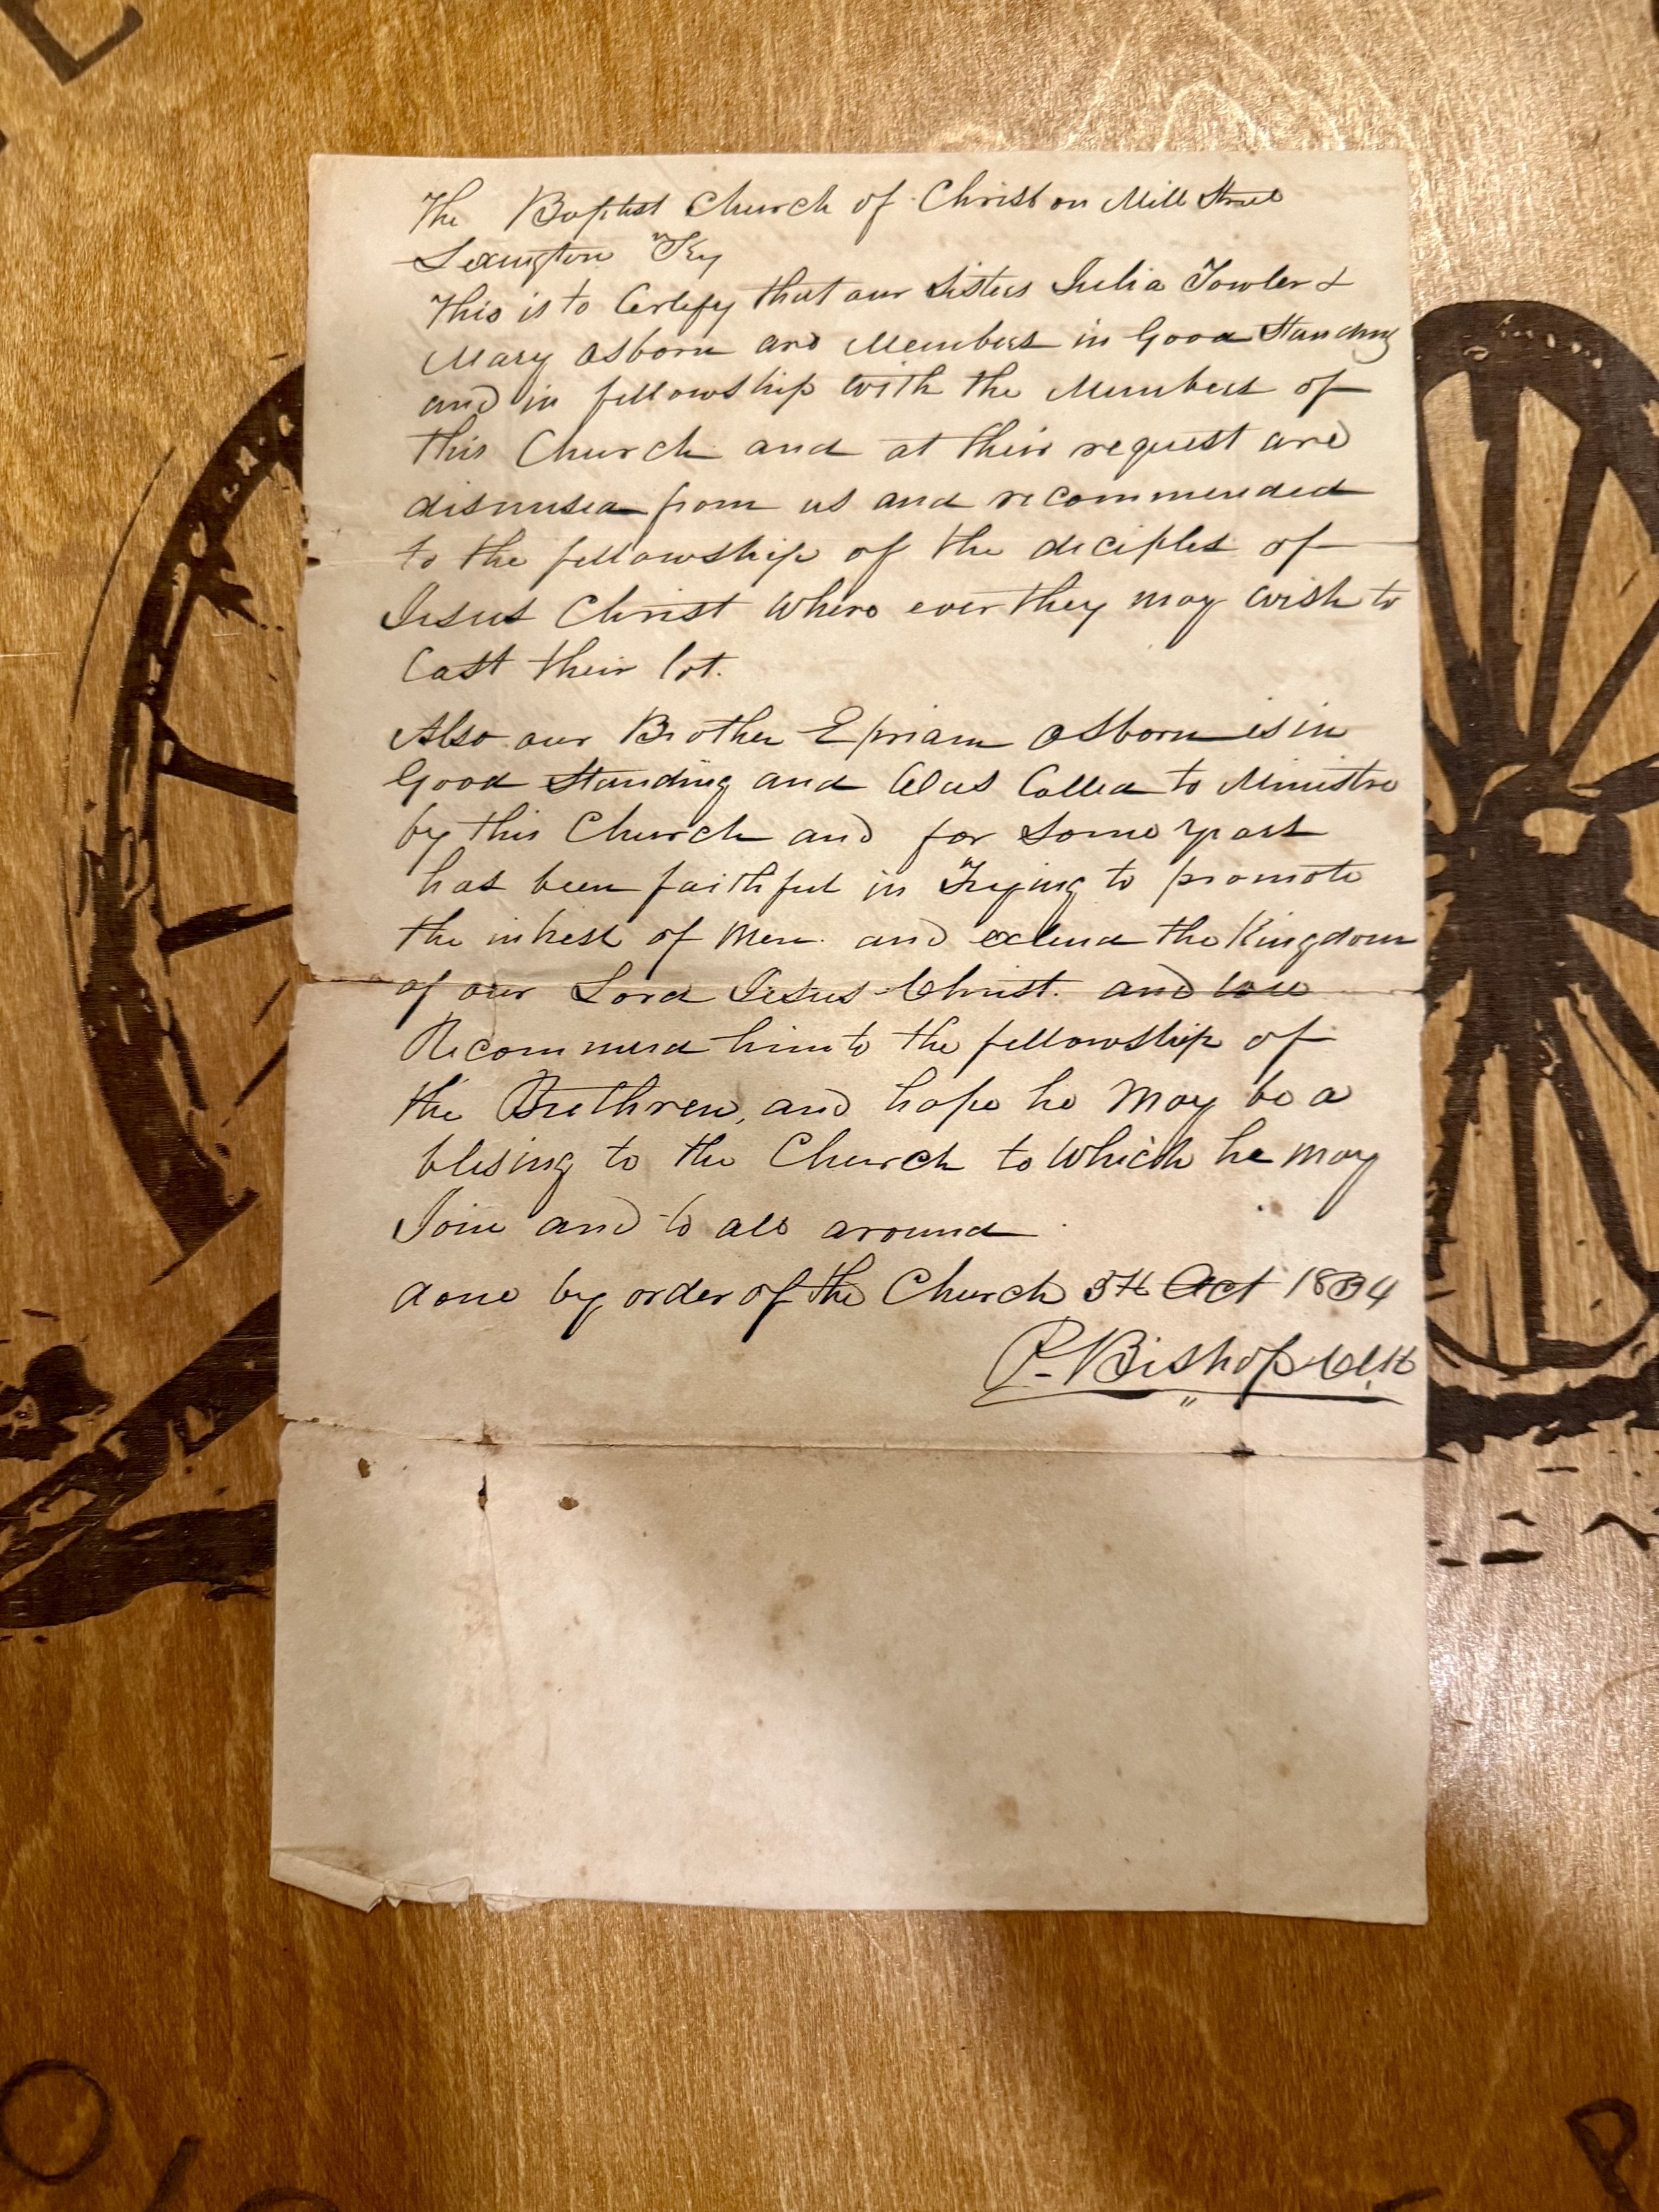 The Baptist Church of Christ on Mill Street
Lexington Ky
This is to Certify that our Sisters Julia Towler &
Mary Osborn are Members in Good Standing
and in fellowship with the Members of
this Church and at their request are
dismissed from us and recommended
to the fellowship of the deciples of
Jesus Christ where ever they may wish to
Cast their lot.
Also our Brother Epriam Osborn is in
Good Standing and Was Called to Ministre
by this Church and for Some years
has been faithful in Trying to promote
the intrest of Men. and extend the Kingdom
of our Lord Jesus Christ. and we
Recommend him to the fellowship of
the Brethren, and hope he may be a
blesing to the Church to which he may
Join and to all around
done by order of the Church 5th Oct 1834
P. Bishop Clk